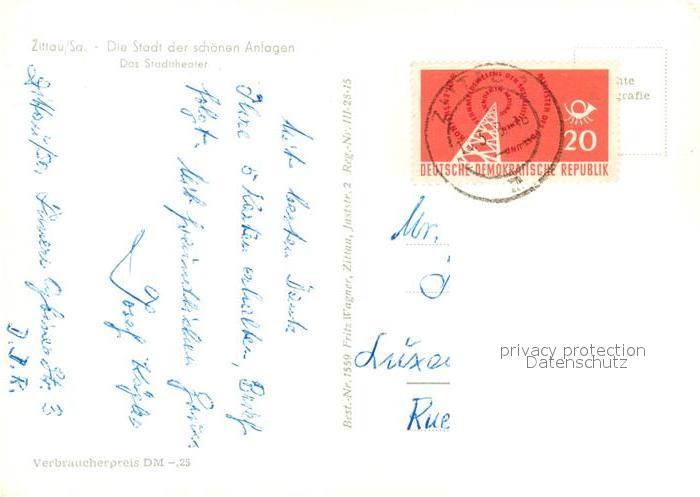 Zittau/Sa. - Die Stadt der schönen Anlagen
Das Stadttheater
Mit besten Dank
Ihre 5 Karten erhalten, Brief
folgt. Mit freundlichen Grüßen
Josef
Zittau/Sa. Innere Oybiner Str. 3
D.D.R.
Verbraucherpreis DM -,25
Best.-Nr. 1559 Fritz Wagner, Zittau, Juststr. 2 Reg.-Nr. III-28-15
20
DEUTSCHE DEMOKRATISCHE REPUBLIK
hte
grafie
Mr.
Luxe
Rue
privacy protection
Datenschutz